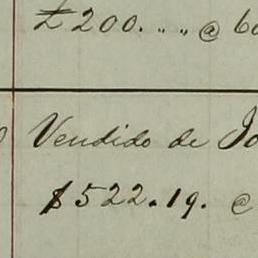 £200. „ „ @ 60
Vendido de Jo
$522.19. @